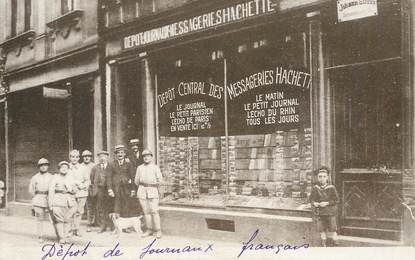 DEPÔT JOURNAUX MESSAGERIES HACHETTE
DEPÔT CENTRAL DES MESSAGERIES HACHET
LE JOURNAL
LE PETIT PARISIEN
L'ECHO DE PARIS
EN VENTE ICI
LE MATIN
LE PETIT JOURNAL
L'ECHO DU RHIN
TOUS LES JOURS
Depôt de Journaux français